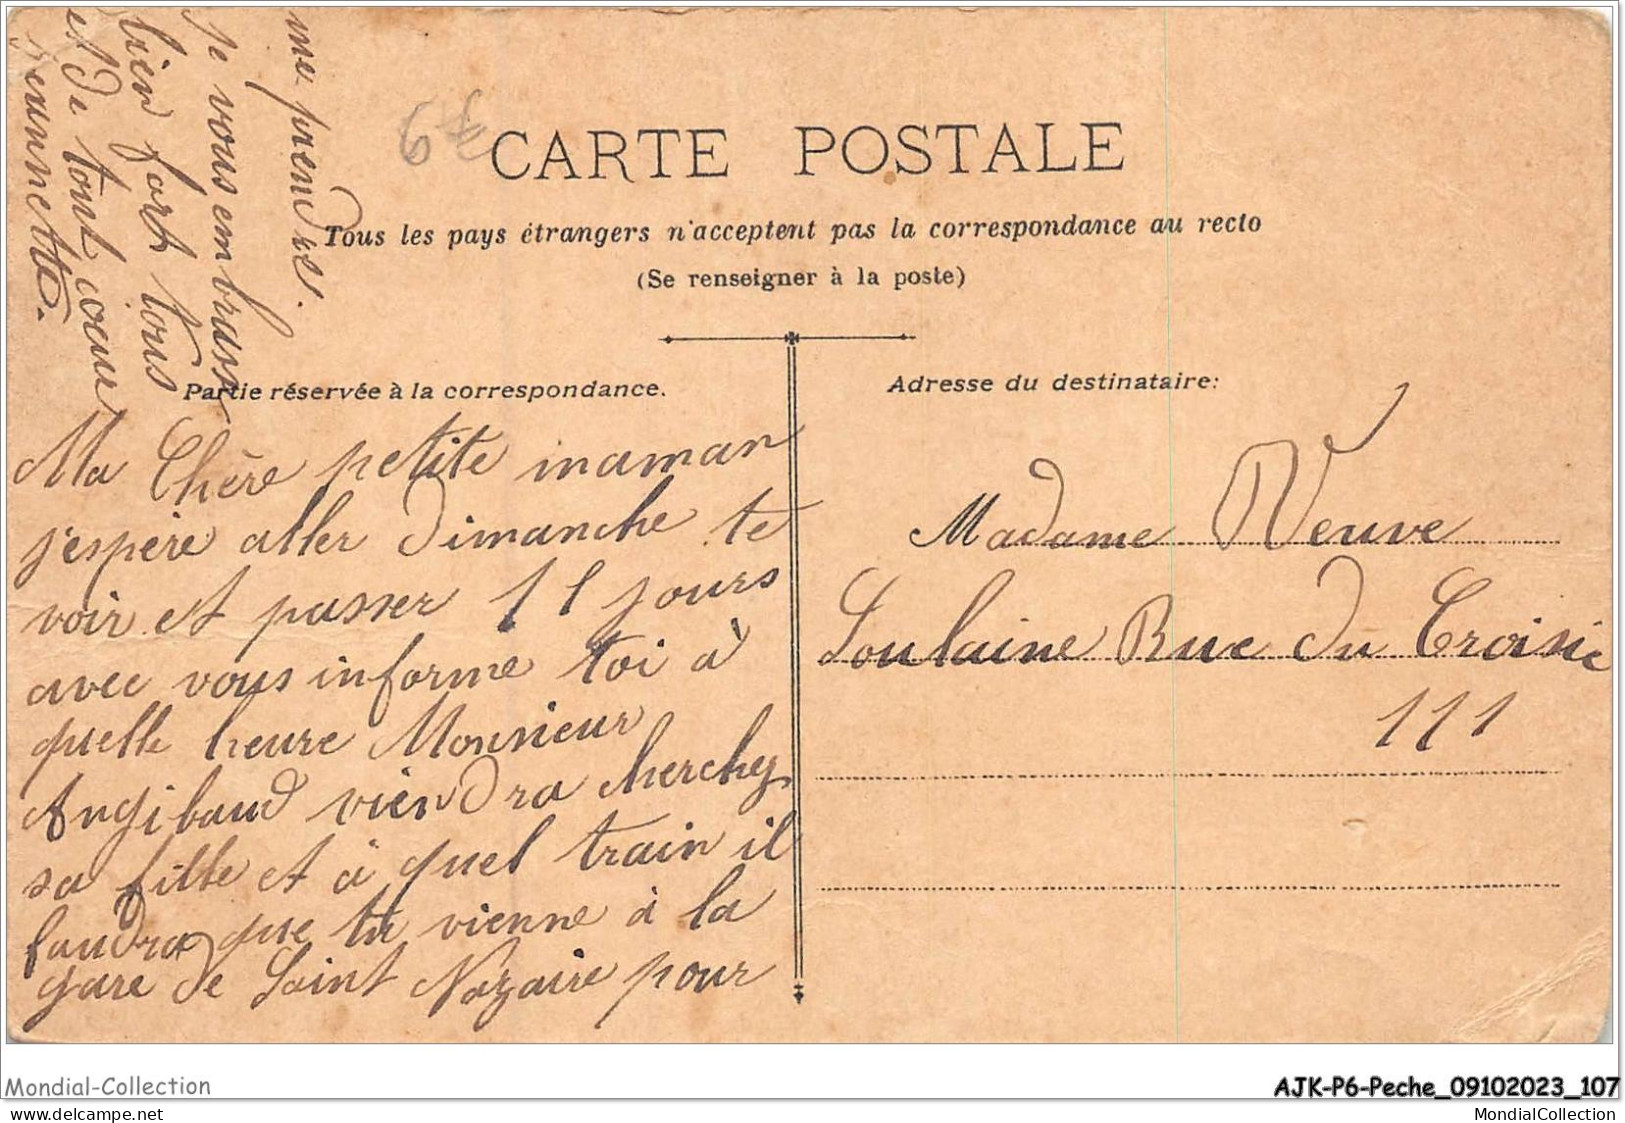 CARTE POSTALE
Tous les pays étrangers n'acceptent pas la correspondance au recto
(Se renseigner à la poste)
Partie réservée à la correspondance.
Adresse du destinataire:
Ma Chère petite maman
j'espère aller dimanche te
voir et passer 11 jours
avec vous informe toi à
quelle heure Monsieur
Angibaud viendra cherchez
sa fille et à quel train il
faudra que tu vienne à la
gare de Saint Nazaire pour
me prendre.
Je vous embrasse
bien fort tous
et de tout cœur
Jeannette.
Madame Veuve
Soulaine Rue du Croisic
111
Mondial-Collection
AJK-P6-Peche_09102023_107
MondialCollection